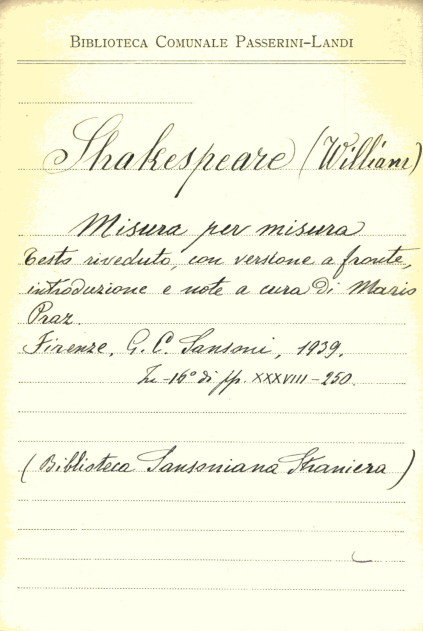 BIBLIOTECA COMUNALE PASSERINI-LANDI
Shakespeare (William)
Misura per misura
Testo riveduto, con versione a fronte,
introduzione e note a cura di Mario
Praz.
Firenze, G. C. Sansoni, 1939.
In-16° di pp. XXXVIII-250.
(Biblioteca Sansoniana Straniera)